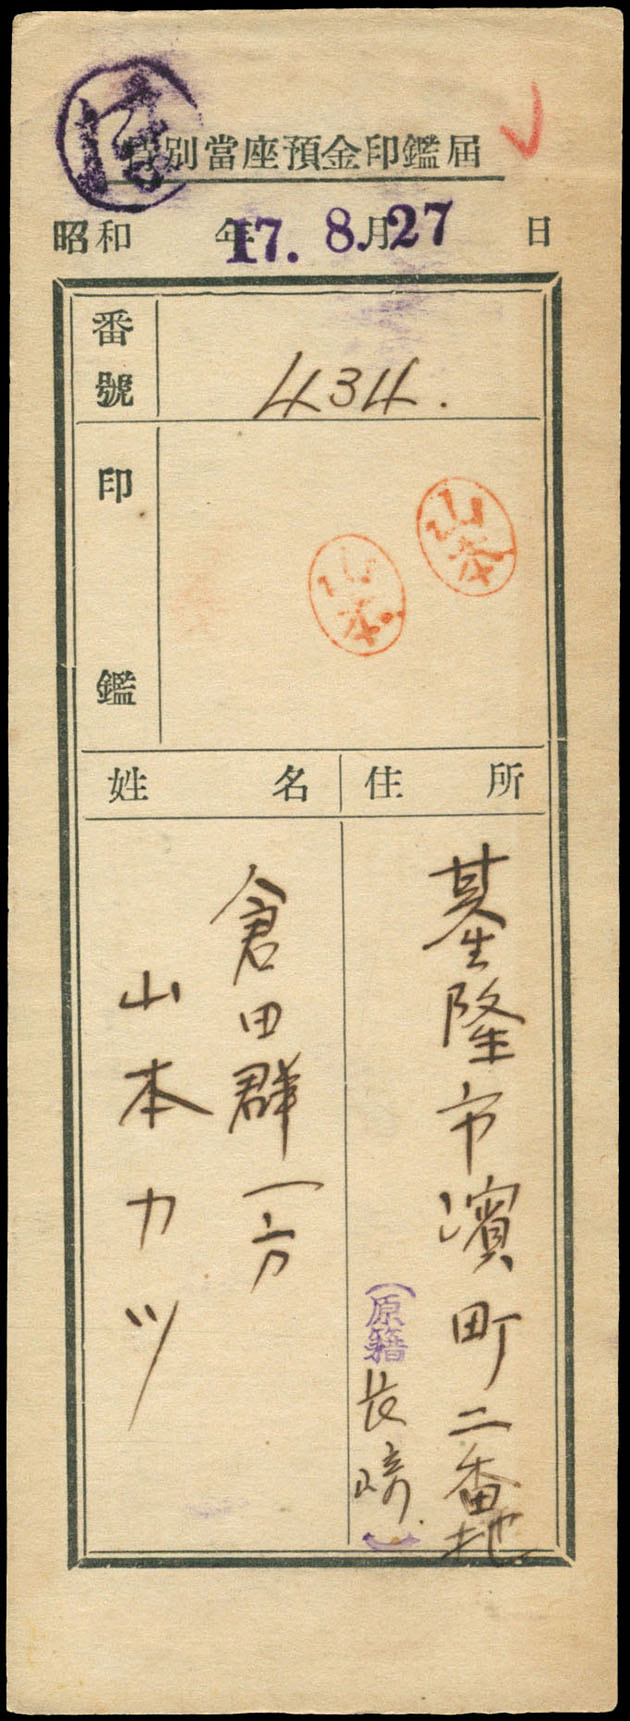 特別當座預金印鑑届
昭和 年 17. 8月27 日
番號
434.
印鑑
山本
山本
姓名
住所
基隆市濱町二番地
(原籍長崎)
倉田群一方
山本カツ